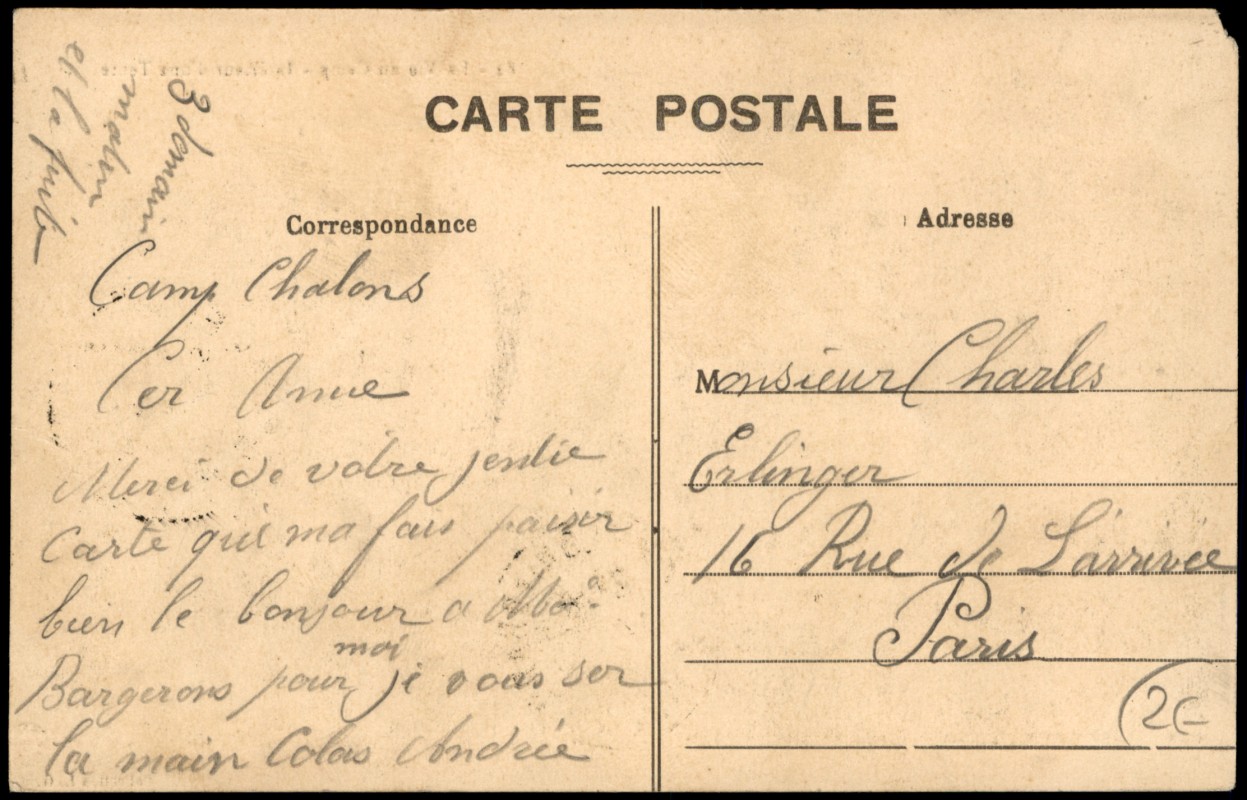 CARTE POSTALE
Correspondance
Adresse
3 demain
matin
et la
Camp Chalons
Cer Amie
Merci de votre jentie
Carte qui ma fais paisir
bien le bonjour a
Bargerons pour moi je vous ser
la main Colas Andrée
Monsieur Charles
Erlinger
16 Rue de L'arrivée
Paris
2€